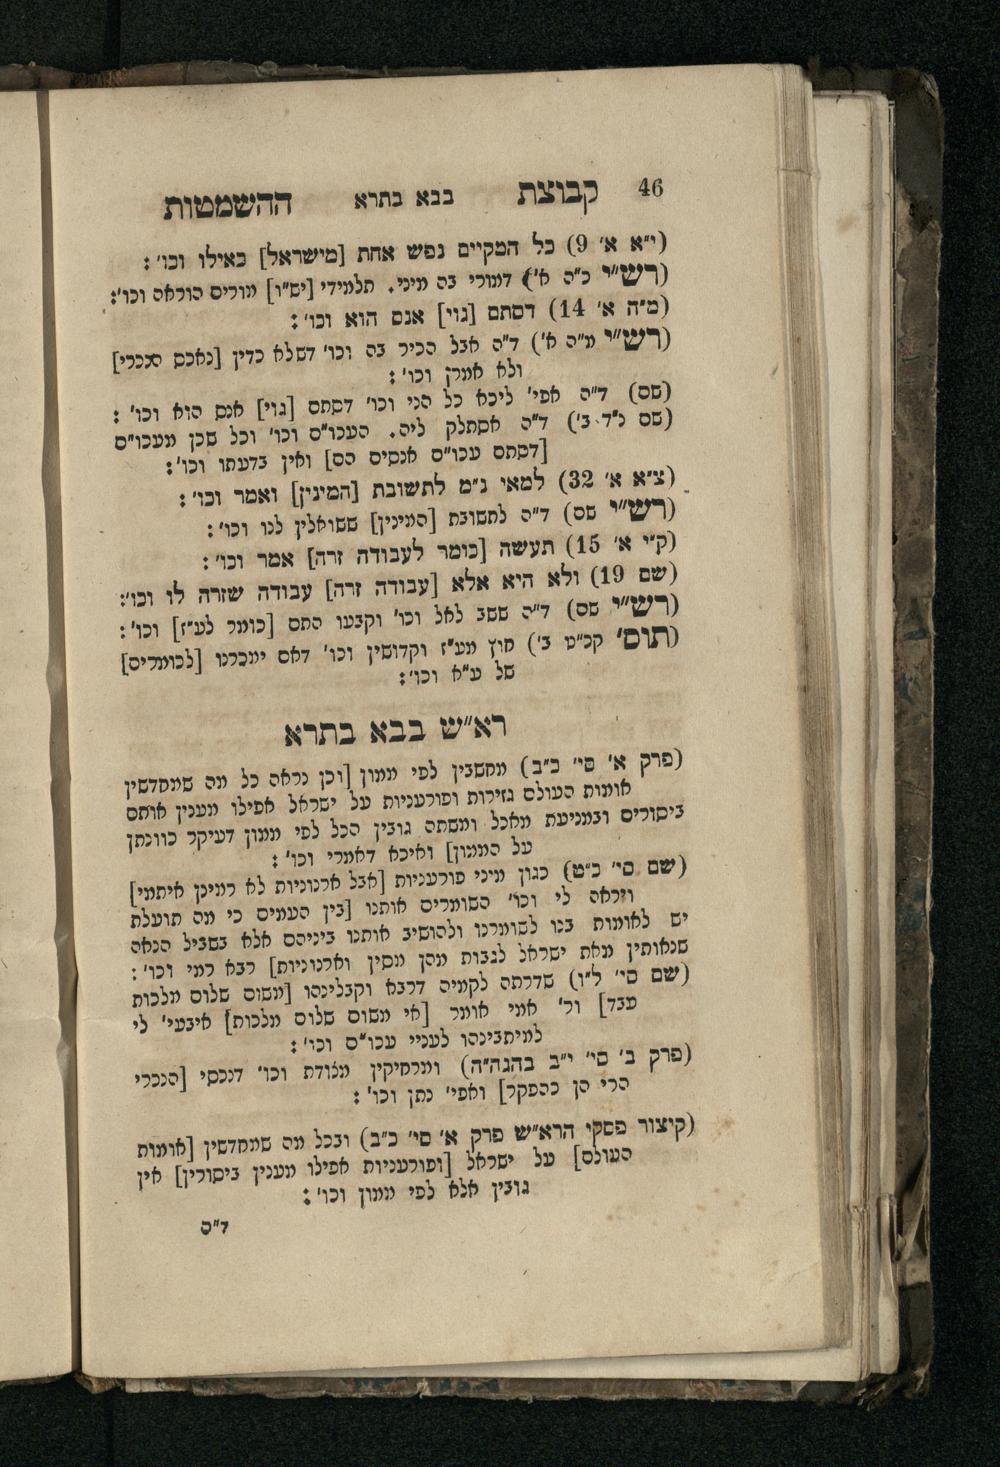 46 קבוצת בבא בתרא ההשמטות
(י״א א׳ 9) כל המקיים נפש אחת [מישראל] כאילו וכו׳ :
(רש״י כ״ה א׳) דמורי בה מיני. תלמידי [יש״ו] מורים הוראה וכו׳:
(מ״ה א׳ 14) דסתם [גוי] אנס הוא וכו׳ :
(רש״י מ״ה א׳) ד״ה אבל הכיר בה וכו׳ דשלא כדין [נאכס הנכרי]
ולא אמרן וכו׳ :
(שם) ד״ה אפי׳ ליכא כל הני וכו׳ דסתם [גוי] אנס הוא וכו׳ :
(שם נ״ד ב׳) ד״ה אסתלק ליה. העכו״ם וכו׳ וכל שכן מעכו״ם
[דסתם עכו״ם אנסים הם] ואין בדעתו וכו׳ :
(צ״א א׳ 32) למאי נ״מ לתשובת [המינין] ואמר וכו׳ :
(רש״י שם) ד״ה לתשובת [המינין] ששואלין לנו וכו׳ :
(ק״י א׳ 15) תעשה [כומר לעבודה זרה] אמר וכו׳ :
(שם 19) ולא היא אלא [עבודה זרה] עבודה שזרה לו וכו׳:
(רש״י שם) ד״ה ששב לאל וכו׳ וקבעו התם [כומר לע״ז] וכו׳ :
(תוס׳ קכ״ט ב׳) חוץ מע״ז וקדושין וכו׳ דאם ימכרנו [לכומרים]
של ע״א וכו׳ :
רא״ש בבא בתרא
(פרק א׳ סי׳ כ״ב) מחשבין לפי ממון [וכן נראה כל מה שמחדשין
אומות העולם גזירות ופורעניות על ישראל אפילו מענין אותם
ביסורים ובמניעת מאכל ומשתה גובין הכל לפי ממון דעיקר כוונתן
על הממון] ואיכא דאמרי וכו׳ :
(שם סי׳ כ״ט) כגון מיני פורעניות [אבל ארנוניות לא רמינן איתמי]
ונראה לי וכו׳ השומרים אותנו [בין העמים כי מה תועלת
יש לאומות בנו לשומרנו ולהושיב אותנו ביניהם אלא בשביל הנאה
שנאותין מאת ישראל לגבות מהן מסין וארנוניות] רבא רמי וכו׳ :
(שם סי׳ ל״ו) שדרתה לקמיה דרבא וקבלינהו [משום שלום מלכות
עבד] ור׳ אמי אומר [אי משום שלום מלכות] איבעי׳ לי
למיתבינהו לעניי עכו״ם וכו׳ :
(פרק ב׳ סי׳ י״ב בהגה״ה) ומרחיקין מצודת וכו׳ דנכסי [הנכרי
הרי הן כהפקר] ואפי׳ נתן וכו׳ :
(קיצור פסקי הרא״ש פרק א׳ סי׳ כ״ב) ובכל מה שמחדשין [אומות
העולם] על ישראל [ופורעניות אפילו מענין ביסורין] אין
גובין אלא לפי ממון וכו׳ :
ד״ה